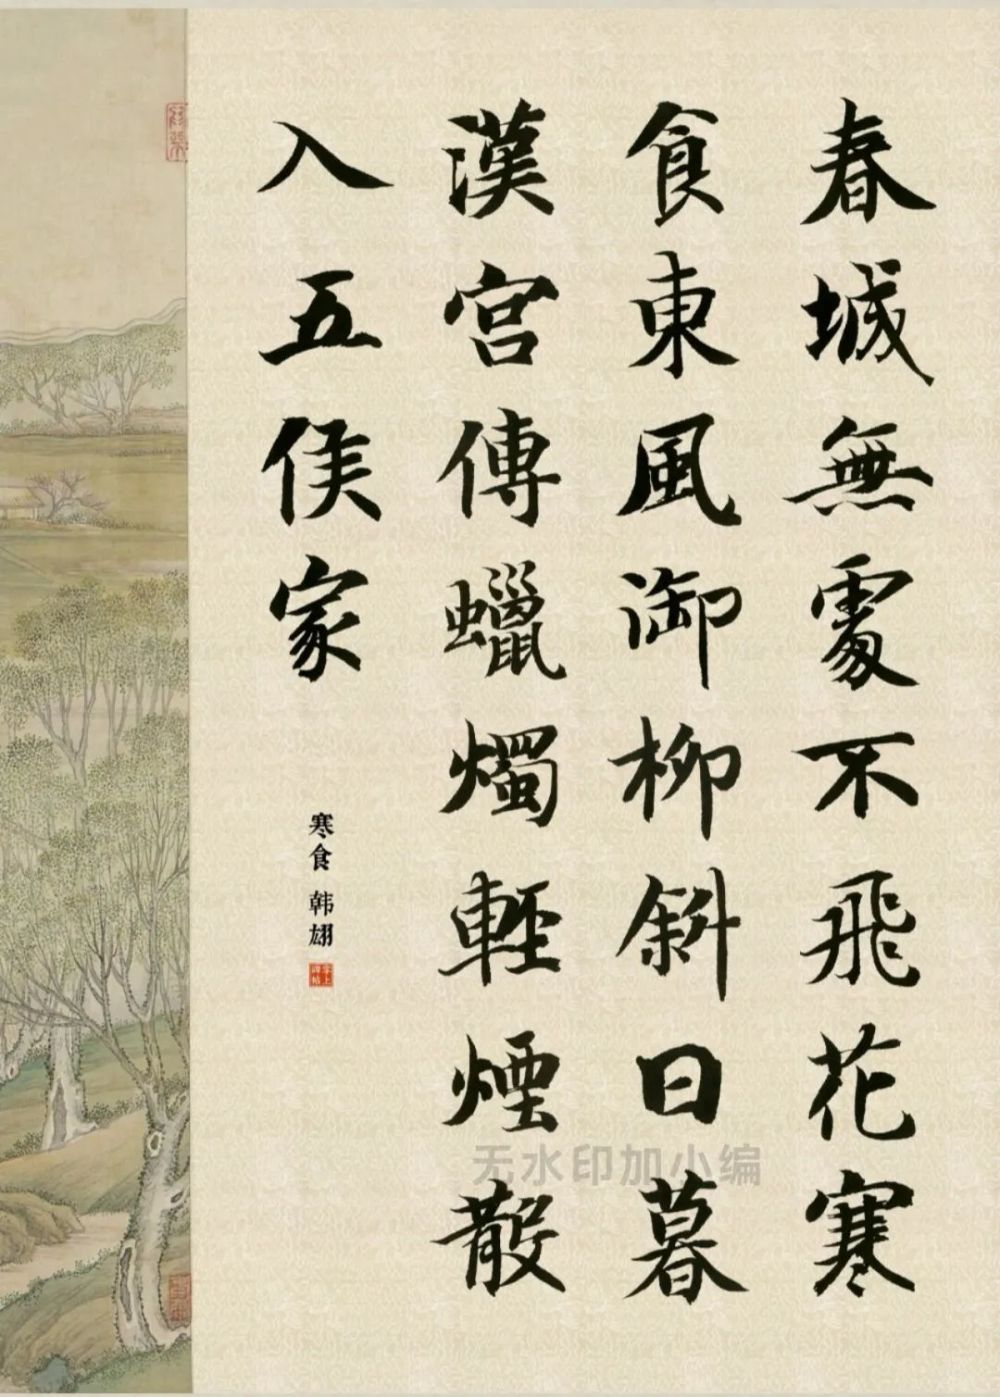 春城無處不飛花寒
食東風御柳斜日暮
漢宮傳蠟燭輕煙散
入五侯家
寒食 韩翃
掌上碑帖
无水印加小编